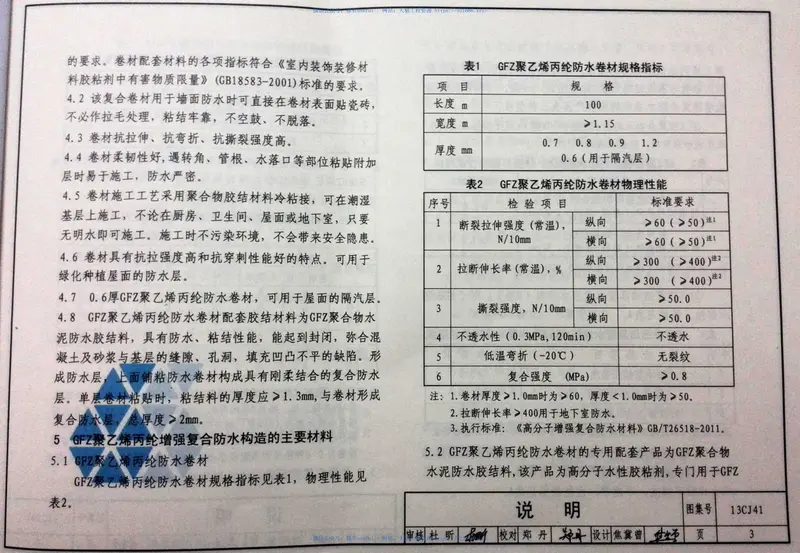 的要求。卷材配套材料的各项指标符合《室内装饰装修材
料胶粘剂中有害物质限量》(GB18583-2001)标准的要求。
4.2 该复合卷材用于墙面防水时可直接在卷材表面贴瓷砖,
不必作拉毛处理，粘结牢靠，不空鼓、不脱落。
4.3 卷材抗拉伸、抗弯折、抗撕裂强度高。
4.4 卷材柔韧性好,遇转角、管根、水落口等部位粘贴附加
层时易于施工，防水严密。
4.5 卷材施工工艺采用聚合物胶结材料冷粘接，可在潮湿
基层上施工，不论在厨房、卫生间、屋面或地下室，只要
无明水即可施工。施工时不污染环境，不会带来安全隐患。
4.6 卷材具有抗拉强度高和抗穿刺性能好的特点。可用于
绿化种植屋面的防水层。
4.7 0.6厚GFZ聚乙烯丙纶防水卷材，可用于屋面的隔汽层。
4.8 GFZ聚乙烯丙纶防水卷材配套胶结材料为GFZ聚合物水
泥防水胶结料，具有防水、粘结性能，能起到封闭，弥合混
凝土及砂浆与基层的缝隙、孔洞，填充凹凸不平的缺陷。形
成防水层，上面铺粘防水卷材构成具有刚柔结合的复合防水
层。单层卷材粘贴时，粘结料的厚度应≥1.3mm,与卷材形成
复合防水层，总厚度≥2mm。
5 GFZ聚乙烯丙纶增强复合防水构造的主要材料
5.1 GFZ聚乙烯丙纶防水卷材
GFZ聚乙烯丙纶防水卷材规格指标见表1，物理性能见
表2。
表1 GFZ聚乙烯丙纶防水卷材规格指标
项 目 规 格
长度 m 100
宽度 m ≥1.15
厚度 mm 0.7 0.8 0.9 1.2
0.6(用于隔汽层)
表2 GFZ聚乙烯丙纶防水卷材物理性能
序号 检 验 项 目 标准要求
1 断裂拉伸强度(常温), N/10mm 纵向 ≥60(≥50)注1
横向 ≥60(≥50)注1
2 拉断伸长率(常温),% 纵向 ≥300 (≥400)注2
横向 ≥300 (≥400)注2
3 撕裂强度，N/10mm 纵向 ≥50.0
横向 ≥50.0
4 不透水性(0.3MPa,120min) 不透水
5 低温弯折(-20℃) 无裂纹
6 复合强度 (MPa) ≥0.8
注：1.卷材厚度≥1.0mm时为≥60，厚度<1.0mm时为≥50。
2.拉断伸长率≥400用于地下室防水。
3.执行标准：《高分子增强复合防水材料》GB/T26518-2011。
5.2 GFZ聚乙烯丙纶防水卷材的专用配套产品为GFZ聚合物
水泥防水胶结料,该产品为高分子水性胶粘剂,专门用于GFZ
说 明 图集号 13CJ41
审核 杜昕 校对 郑丹 设计 焦冀曾 页 3